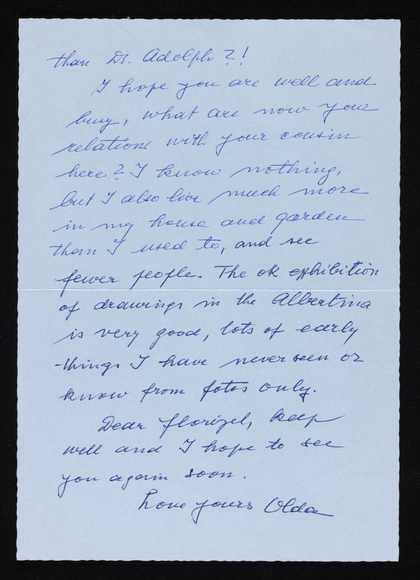 than Dr. Adolph?!
I hope you are well and
busy, what are now your
relations with your cousin
here? I know nothing,
but I also live much more
in my house and garden
than I used to, and see
fewer people. The OK exhibition
of drawings in the Albertina
is very good, lots of early
things I have never seen or
know from fotos only.
Dear Florizel, keep
well and I hope to see
you again soon.
Love yours Olda